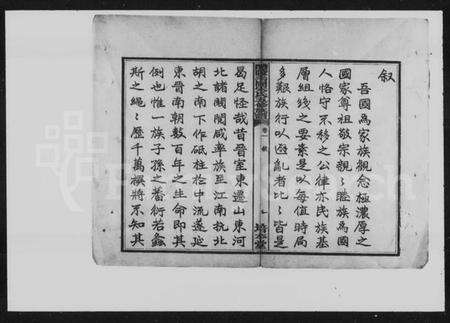 叙
吾國為家族觀念極濃厚之
國家尊祖敬宗親親睦族為國
人恪守不移之公律亦民族基
層組織之要素是以每值時局
多艱族行以避亂者比比皆是
曷足怪哉昔晉室東遷山東河
北諸閥閱咸率族至江南抗北
胡之南下作砥柱於中流蓬延
東晉南朝數百年之生命即其
例也惟一族子孫之蕃衍若螽
斯之繩繩歷千萬禩將不知其
卷一 叙
七